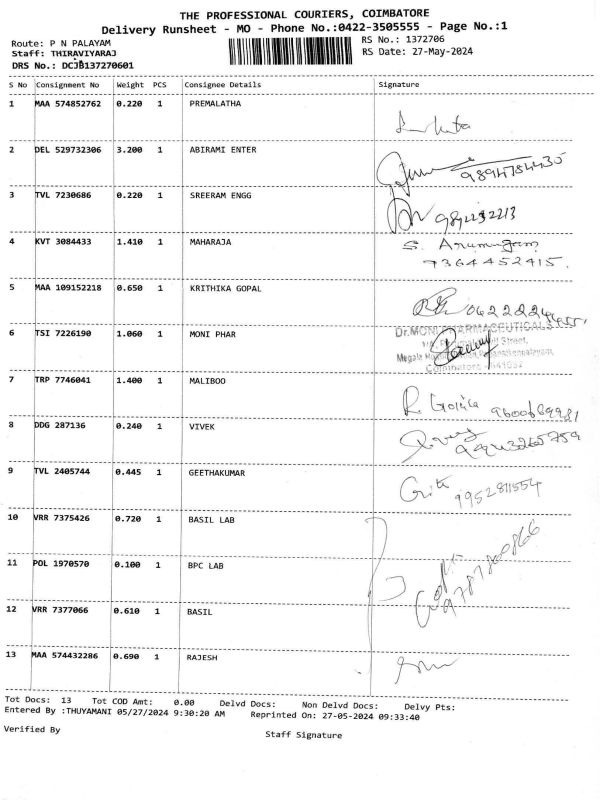 THE PROFESSIONAL COURIERS, COIMBATORE
Delivery Runsheet - MO - Phone No.:0422-3505555 - Page No.:1
Route: P N PALAYAM RS No.: 1372706
Staff: THIRAVIYARAJ RS Date: 27-May-2024
DRS No.: DCJB137270601
S No Consignment No Weight PCS Consignee Details Signature
1 MAA 574852762 0.220 1 PREMALATHA
2 DEL 529732306 3.200 1 ABIRAMI ENTER
9894784430
3 TVL 7230686 0.220 1 SREERAM ENGG
4 KVT 3084433 1.410 1 MAHARAJA S. Arumugam
7364452415.
5 MAA 109152218 0.650 1 KRITHIKA GOPAL
6 TSI 7226190 1.060 1 MONI PHAR Dr.MONI PHARMACEUTICALS
Street,
Coimbatore
7 TRP 7746041 1.400 1 MALIBOO
8 DDG 287136 0.240 1 VIVEK
9 TVL 2405744 0.445 1 GEETHAKUMAR
9952811554
10 VRR 7375426 0.720 1 BASIL LAB
9787800866
11 POL 1970570 0.100 1 BPC LAB
12 VRR 7377066 0.610 1 BASIL
13 MAA 574432286 0.690 1 RAJESH
Tot Docs: 13 Tot COD Amt: 0.00 Delvd Docs: Non Delvd Docs: Delvy Pts:
Entered By :THUYAMANI 05/27/2024 9:30:20 AM Reprinted On: 27-05-2024 09:33:40
Verified By Staff Signature